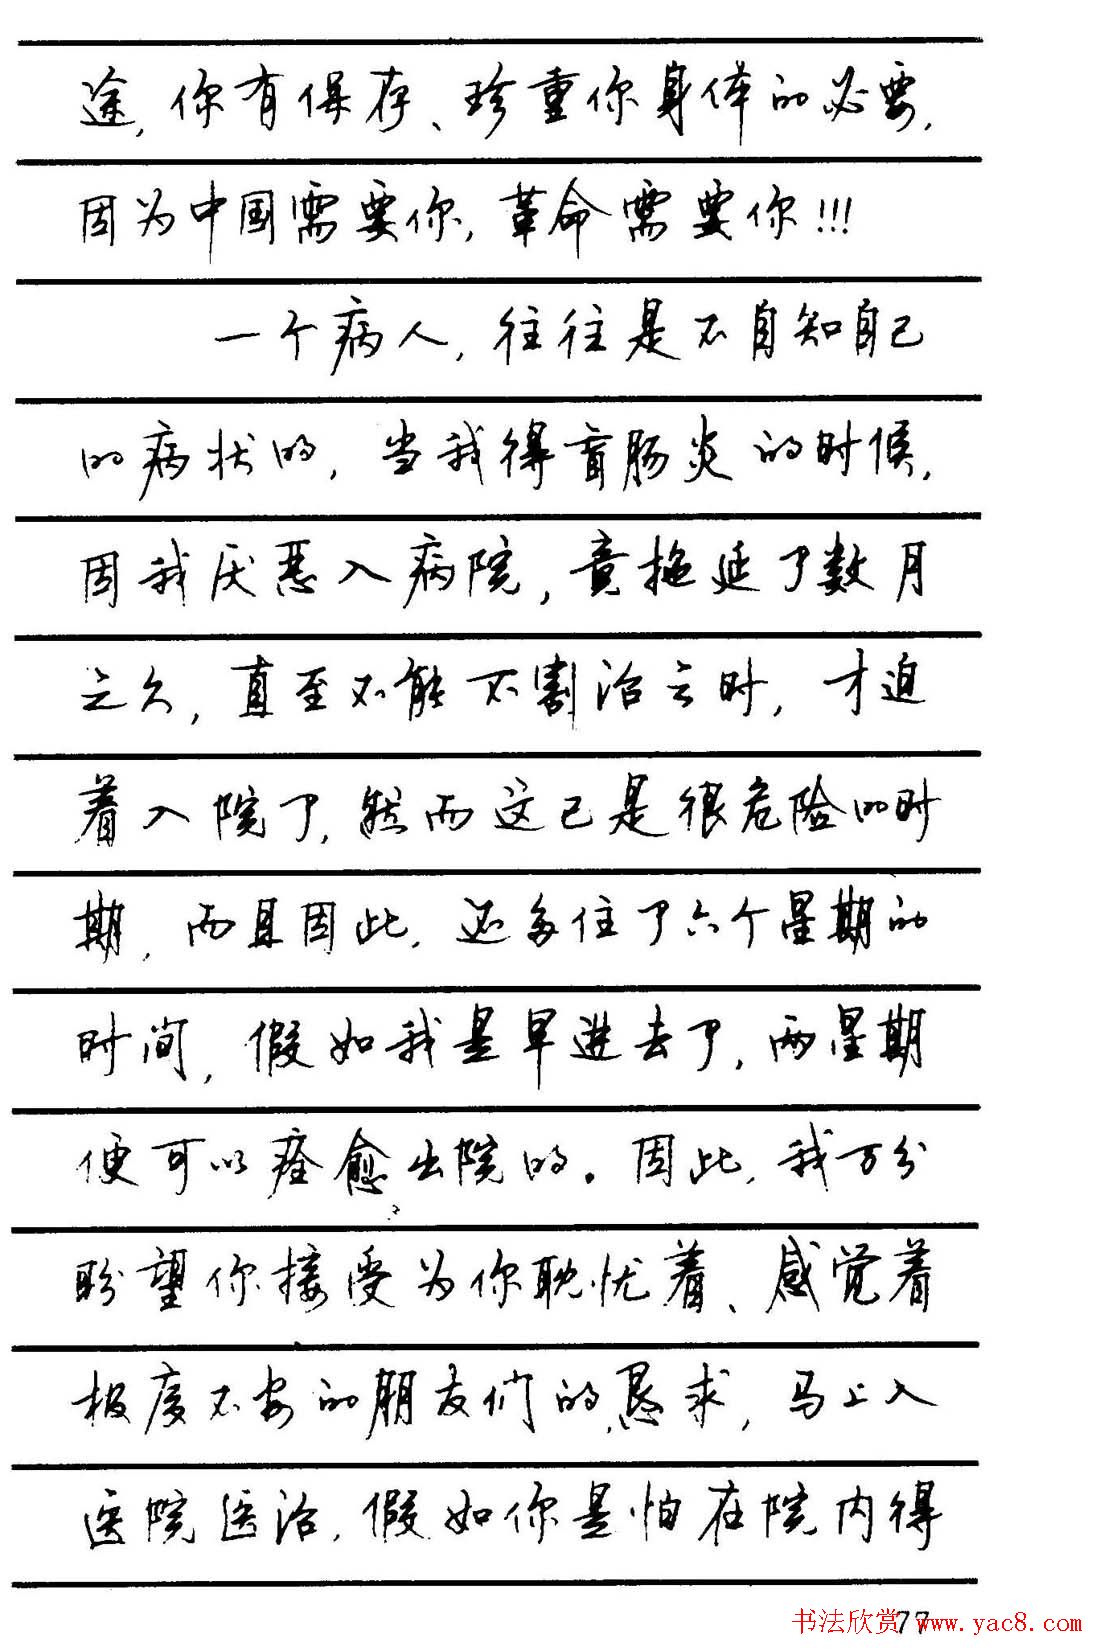 途，你有保存、珍重你身体的必要，
因为中国需要你，革命需要你！！！
一个病人，往往是不自知自己
的病状的，当我得盲肠炎的时候，
因我厌恶入病院，竟拖延了数月
之久，直至不能不割治之时，才迫
着入院了，然而这已是很危险的时
期，而且因此，还多住了六个星期的
时间，假如我是早进去了，两星期
便可以痊愈出院的。因此，我万分
盼望你接受为你耽忧着、感觉着
极度不安的朋友们的恳求，马上入
医院医治，假如你是怕在院内得
77
书法欣赏 www.yac8.com